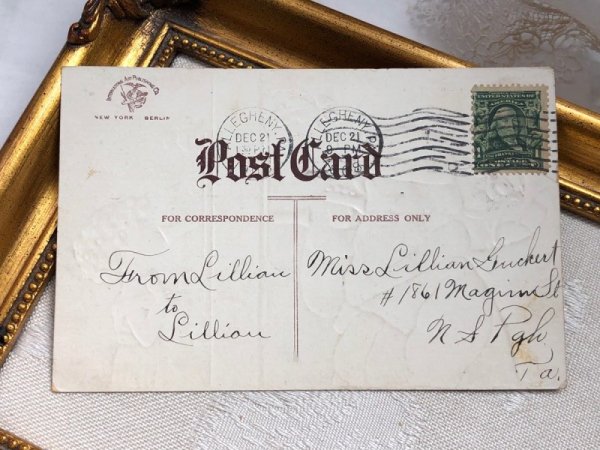 INTERNATIONAL ART PUBLISHING Co.
NEW YORK BERLIN
ALLEGHENY, PA.
DEC 21
ALLEGHENY, PA.
DEC 21
8 PM
Post Card
FOR CORRESPONDENCE
FOR ADDRESS ONLY
From Lillian
to
Lillian
Miss Lillian Guckert
#1861 Maginn St
N S Pgh
Pa.